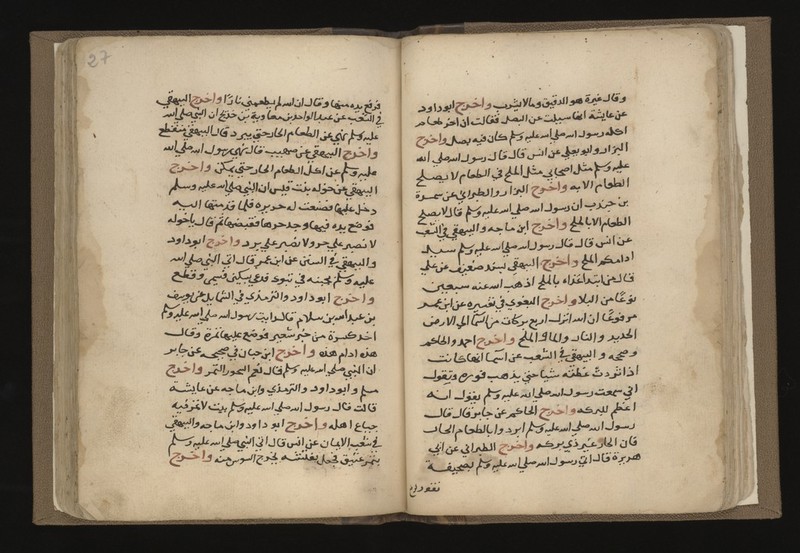 وقال غيره هو الدقيق ومالا يشرب واخرج ابوداود
عن عايشة انها سيلت عن البصل فقالت ان اخر طعام
اكله رسول الله صلى الله عليه وسلم كان فيه بصل واخرج
البزار وابو يعلى عن انس قال قال رسول الله صلى الله
عليه وسلم مثل اصحابي مثل الملح في الطعام لا يصلح
الطعام الا به واخرج البزار والطبراني عن سمرة
بن جندب ان رسول الله صلى الله عليه وسلم قال لا يصلح
الطعام الا بالملح واخرج ابن ماجه والبيهقي في الشعب
عن انس قال قال رسول الله صلى الله عليه وسلم سيد
ادامكم الملح واخرج البيهقي بسند ضعيف عن علي
قال من ابتدا غداه بالملح اذهب الله عنه سبعين
نوعا من البلا واخرج البغوي في تفسيره عن ابن عمر
مرفوعا ان الله انزل اربع بركات من السما الي الارض
الحديد والنار والما والملح واخرج احمد والحاكم
وصححه والبيهقي في الشعب عن اسما انها كانت
اذا ثردت غطته شيا حتي يذهب فوره وتقول
اني سمعت رسول الله صلى الله عليه وسلم يقول انه
اعظم للبركه واخرج الحاكم عن جابر قال قال
رسول الله صلى الله عليه وسلم ابردوا بالطعام الحار
فان الحار غير ذي بركه واخرج الطبراني عن ابي
هريرة قال اتي رسول الله صلى الله عليه وسلم بصحيفة
تفور فرفع
27
فرفع يده منها وقال ان الله لم يطعمني نارا واخرج البيهقي
في الشعب عن عبد الواحد بن معاوية بن خديج ان النبي صلى الله
عليه وسلم نهي عن الطعام الحار حتي يبرد قال البيهقي منقطع
واخرج البيهقي عن صهيب قال نهي رسول الله صلى الله
عليه وسلم عن اكل الطعام الحار حتي يمكن واخرج
البيهقي عن خوله بنت قيس ان النبي صلى الله عليه وسلم
دخل عليها فصنعت له حريره فلما قدمتها اليه
فوضع يده فيها وجد حرها فقبضها ثم قال يا خوله
لا نصبر علي حر ولا نصبر علي برد واخرج ابو داود
والبيهقي في السنن عن ابن عمر قال اتي النبي صلى الله
عليه وسلم بجبنه في تبوك فدعي بسكين فسمي وقطع
واخرج ابو داود والترمذي في الشمايل عن يوسف
بن عبد الله بن سلام قال رايت رسول الله صلى الله عليه وسلم
اخذ كسرة من خبز شعير فوضع عليها تمرة وقال
هذه ادام هذه واخرج ابن حبان في صحيحه عن جابر
ان النبي صلى الله عليه وسلم قال نعم السحور التمر واخرج
مسلم وابو داود والترمذي وابن ماجه عن عايشة
قالت قال رسول الله صلى الله عليه وسلم بيت لا تمر فيه
جياع اهله واخرج ابو داود وابن ماجه والبيهقي
في شعب الايمان عن انس قال اتي النبي صلى الله عليه وسلم
بتمر عتيق فجعل يفتشه يخرج السوس منه واخرج